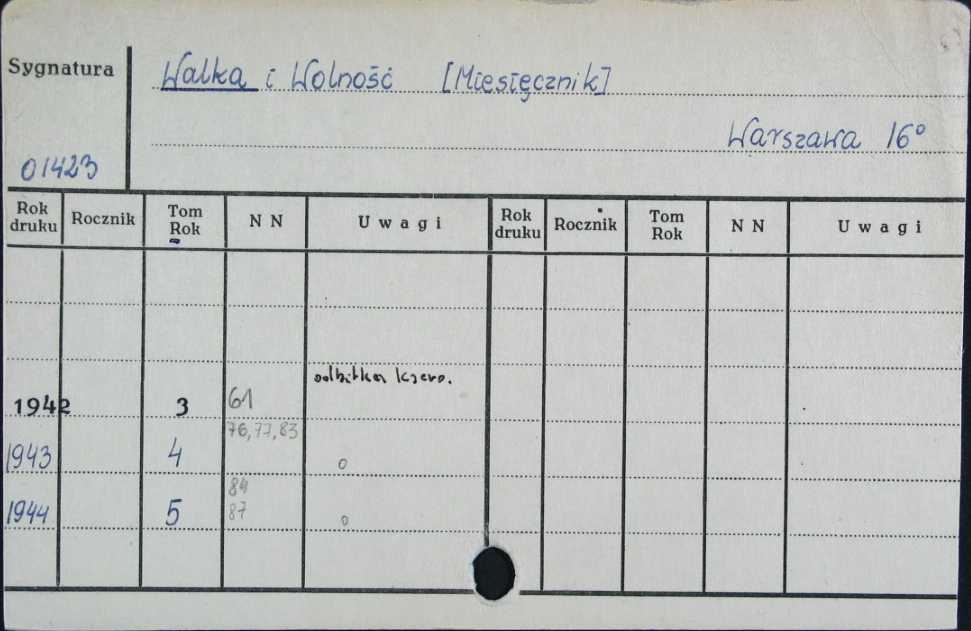 Sygnatura
Walka i Wolność [Miesięcznik]
Warszawa 16°
01423
Rok druku Rocznik Tom Rok N N Uwagi Rok druku Rocznik Tom Rok N N Uwagi
odbitka ksero.
1942 3 61
76, 77, 83
1943 4 o
84
1944 5 87 o